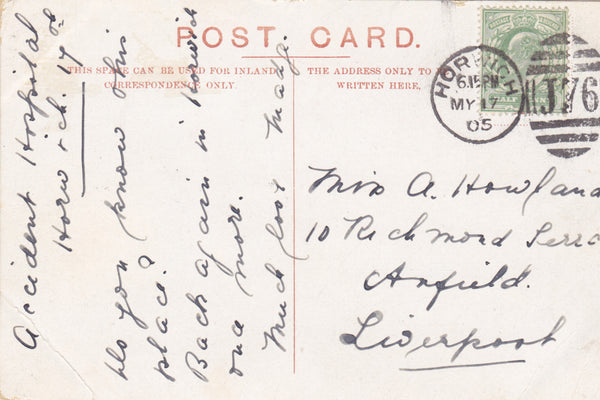 POST CARD.
THIS SPACE CAN BE USED FOR INLAND
CORRESPONDENCE ONLY.
THE ADDRESS ONLY TO
WRITTEN HERE,
HORWICH
6.15PM
MY 17
05
J76
HALF
Accident Hospital
Horwich. 17th
Do you know this
place?
Back again in Horwich
once more.
Much love Madge.
Miss A. Howland
10 Richmond Terrc
Anfield.
Liverpool